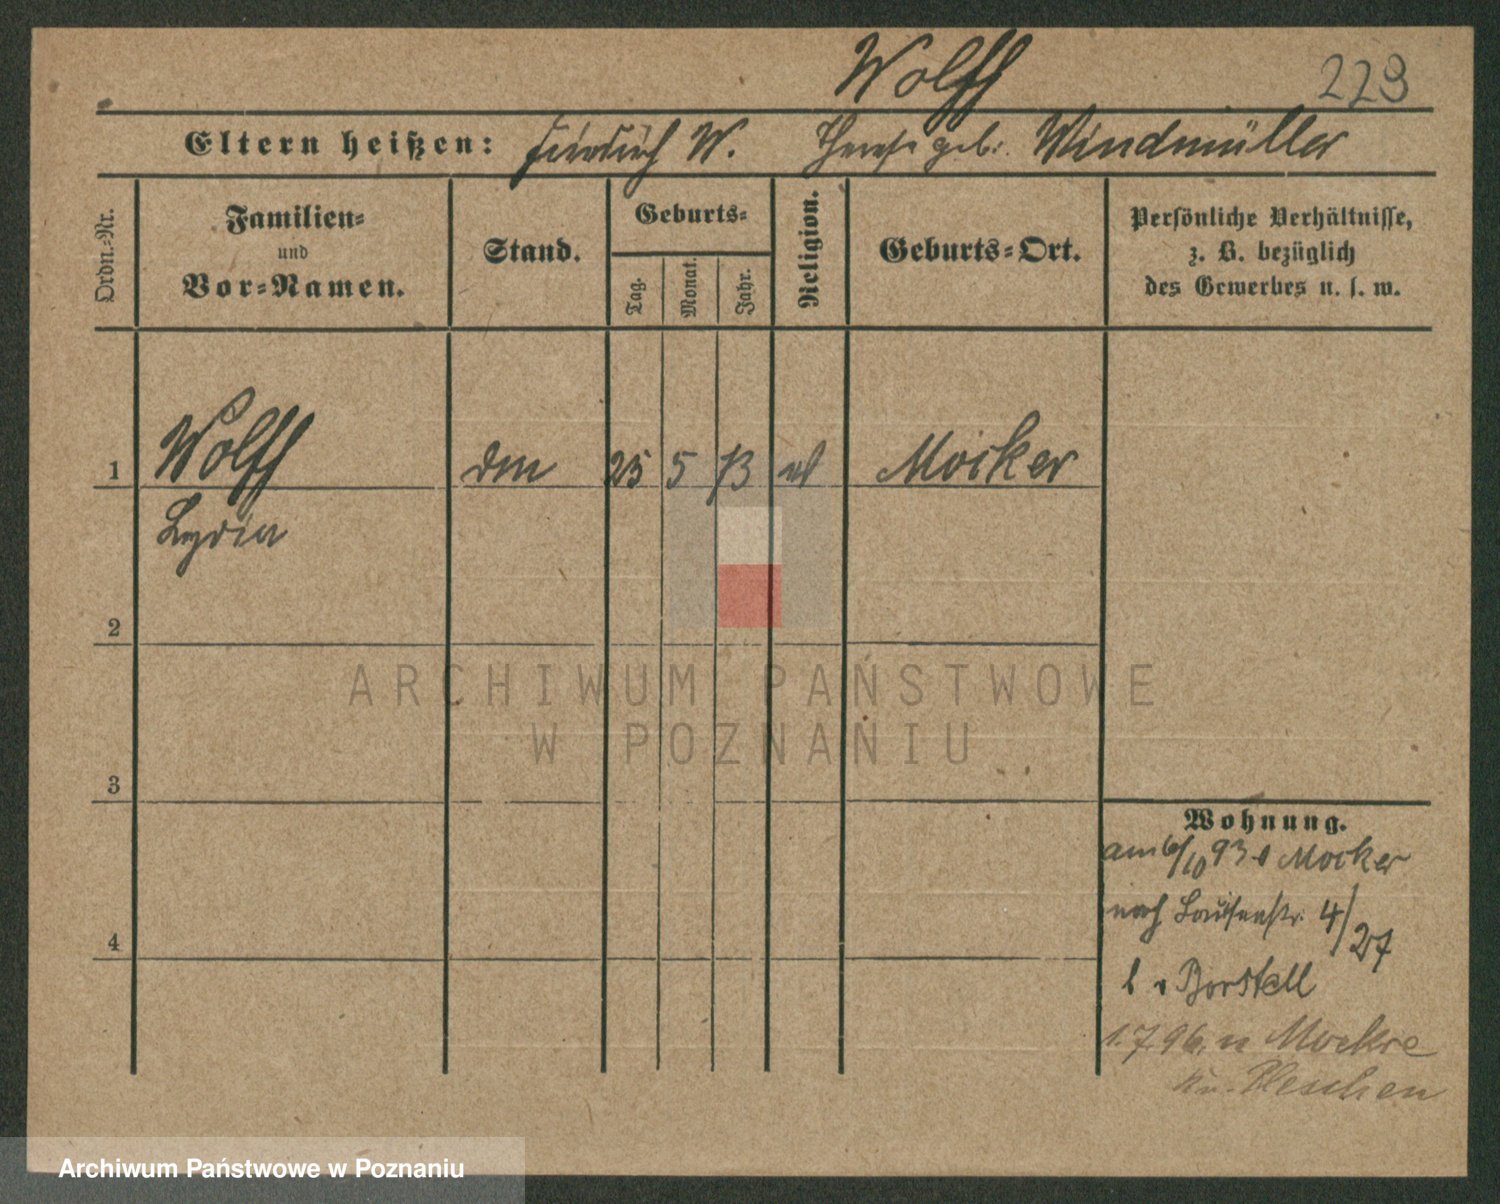 Wolff 229
Eltern heißen: Friedrich W. Therese geb. Windmüller
Ordn.-Nr.
Familien-
und
Vor-Namen.
Stand.
Geburts-
Tag.
Monat.
Jahr.
Religion.
Geburts-Ort.
Persönliche Verhältnisse,
z. B. bezüglich
des Gewerbes u. s. w.
1 Wolff 25 5 73 Mocker
Lydia
2
3
4
ARCHIWUM PAŃSTWOWE
W POZNANIU
Wohnung.
am 6/10 93 v Mocker
nach Louisenstr. 4/27
b v Borstell
1.7.96. n Mockre
Kr. Pleschen
Archiwum Państwowe w Poznaniu